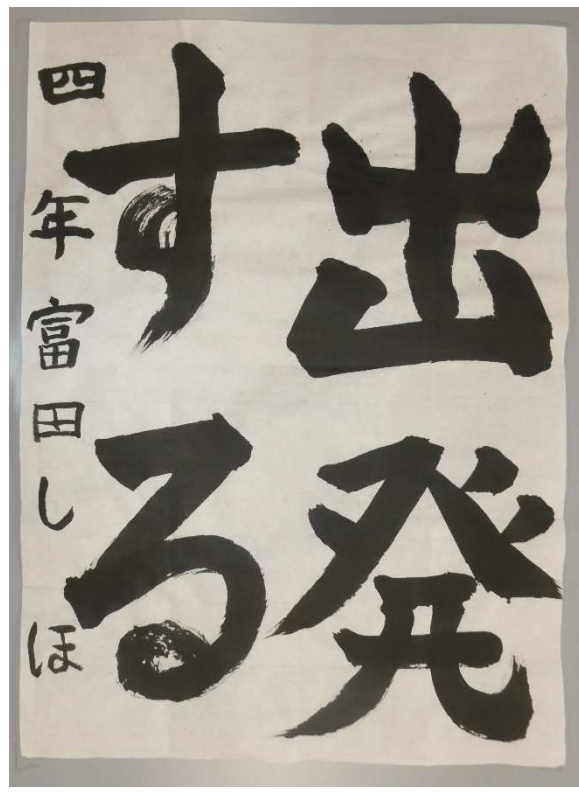 出発
する
四年富田しほ